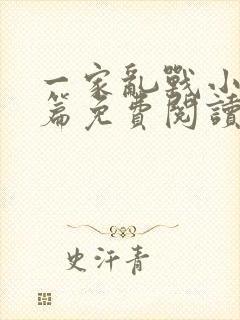 一家亂戰小
篇免費閱讀
史汗青